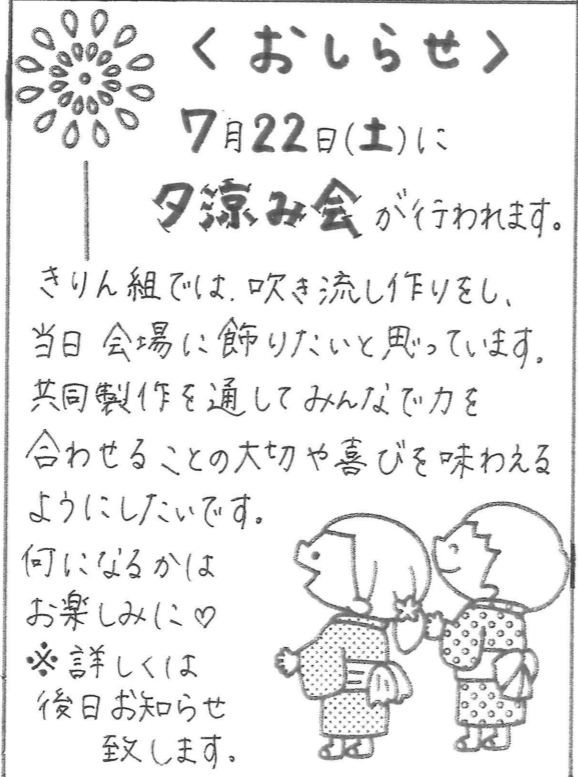 〈おしらせ〉
7月22日(土)に
夕涼み会が行われます。
きりん組では、吹き流し作りをし、
当日会場に飾りたいと思っています。
共同製作を通してみんなで力を
合わせることの大切や喜びを味わえる
ようにしたいです。
何になるかは
お楽しみに♡
※詳しくは
後日お知らせ
致します。